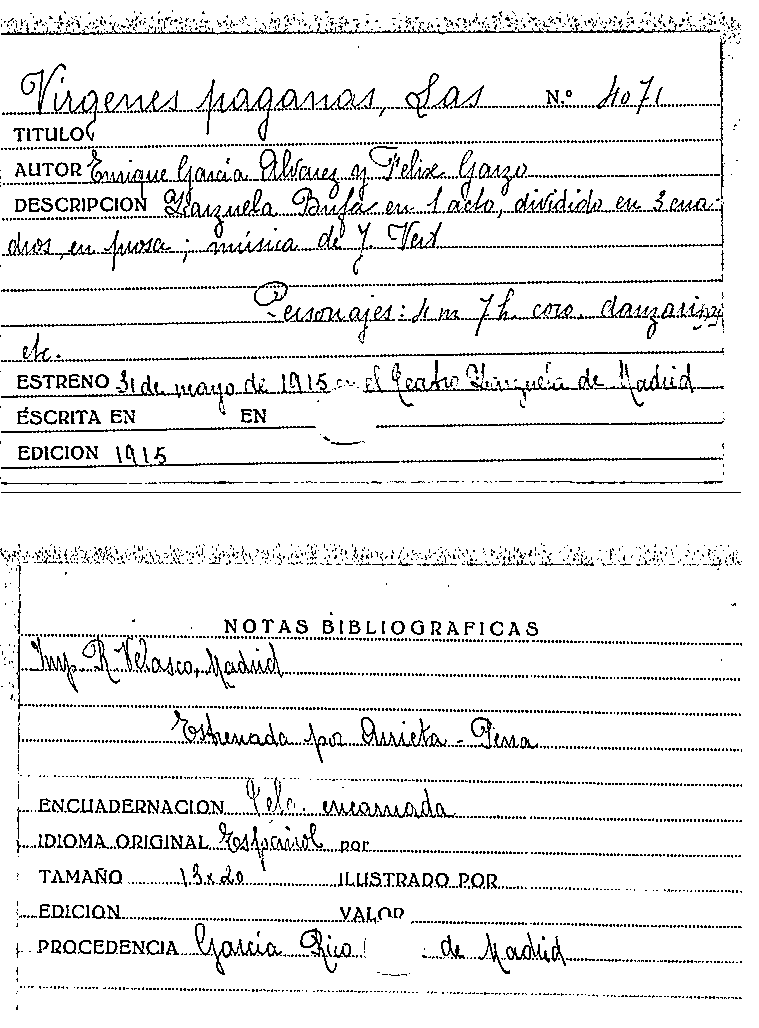 Vírgenes paganas, Las N.º 4071
TITULO
AUTOR Enrique García Alvarez y Felix Garzo
DESCRIPCION Zarzuela Bufa en 1 acto, dividido en 3 cua-
dros, en prosa; música de J. Vert
Personajes: 4 m 7 h. coro. danzarinas
etc.
ESTRENO 31 de mayo de 1915 en el Teatro Zarzuela de Madrid
ESCRITA EN EN
EDICION 1915
NOTAS BIBLIOGRAFICAS
Imp. R. Velasco, Madrid
Estrenada por Arrieta -
ENCUADERNACION Tela encarnada
IDIOMA ORIGINAL Español por
TAMAÑO 13x20 ILUSTRADO POR
EDICION VALOR
PROCEDENCIA García Rico de Madrid